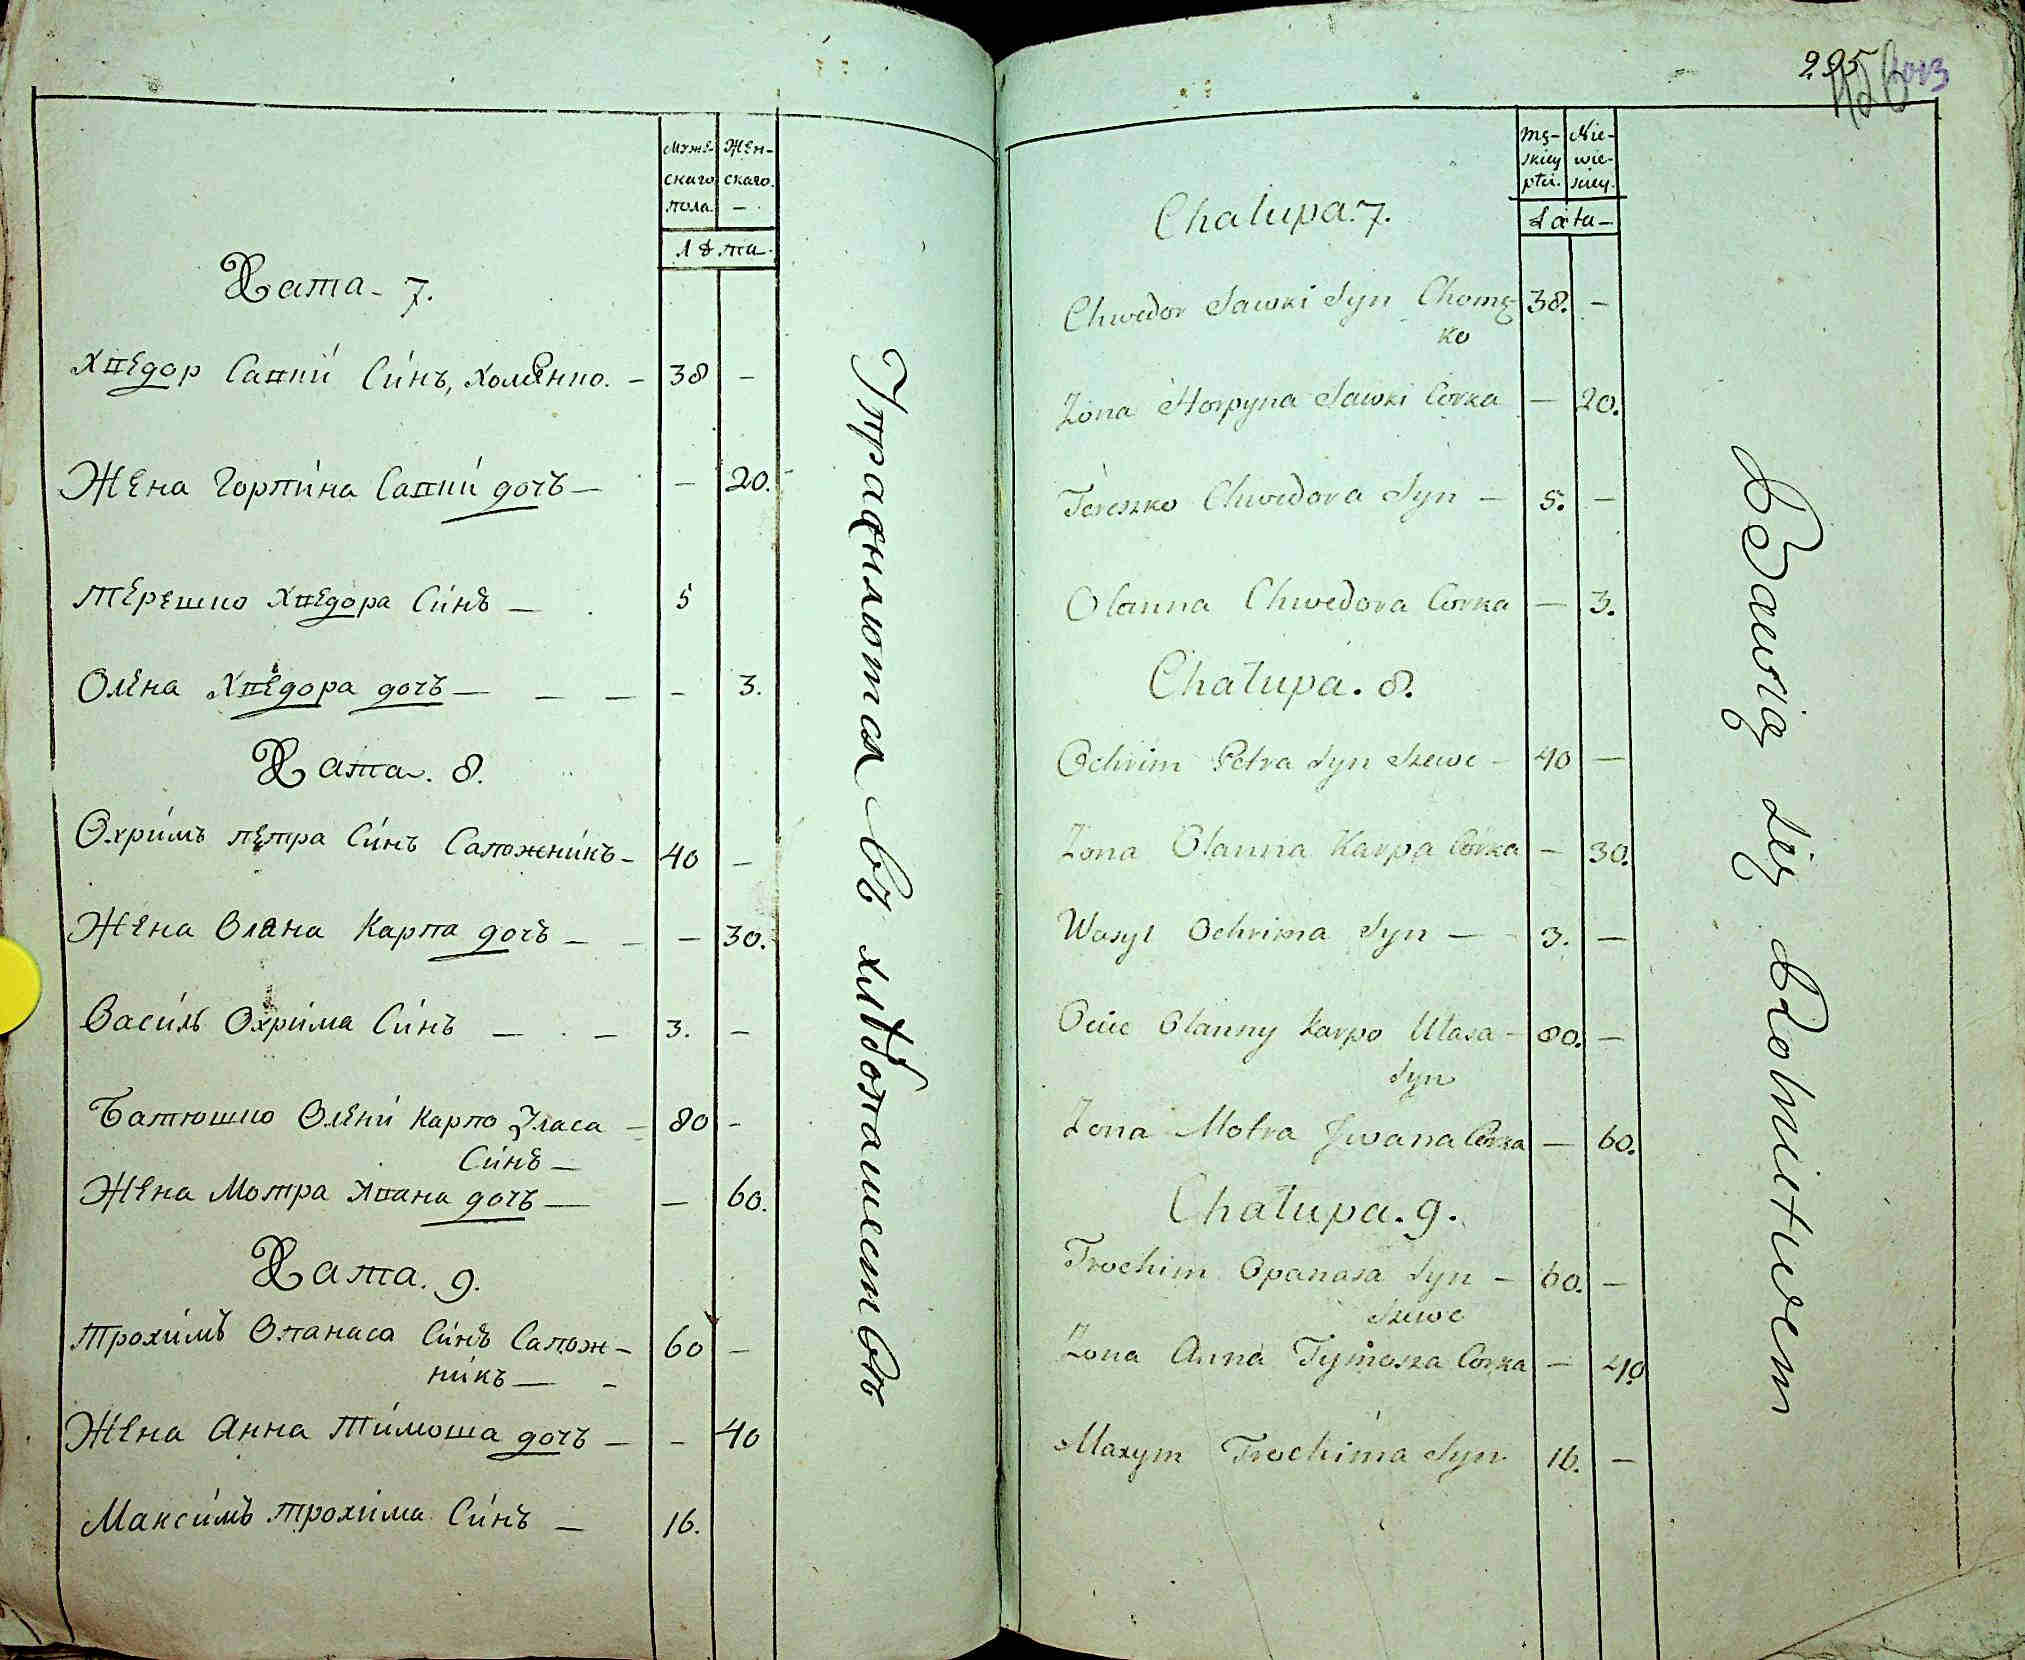 Муже- Жен-
скаго скаго.
пола. –
лѣта.
Хата – 7.
Хведор Савки Синъ, Хоменко. – 38 –
Жена Горпина Савки дочъ – – 20.
Терешко Хведора Синъ – 5
Олена Хведора дочъ – – – – 3.
Хата. 8.
Охримъ петра Синъ Сапожникъ – 40 –
Жена Олена Карпа дочъ – – – 30.
Василь Охрима Синъ – – 3. –
Батюшко Олени Карпо Уласа – 80 –
Синъ –
Жена Мотра Ивана дочъ – – 60.
Хата. 9.
Трохимъ Опанаса Синъ Сапож– 60 –
никъ – –
Жена Анна Тимоша дочъ – – 40
Максимъ трохима Синъ – 16.
Упражнаются въ хлѣбопашествѣ
295
1013
Mę– Nie–
skiey wie–
płci. skiey.
Lata–
Chałupa. 7.
Chwedor Sawki Syn Chomę 38. –
ko
Żona Horpyna Sawki Corka – 20.
Tereszko Chwedora Syn – 5. –
Olanna Chwedora Corka – 3.
Chałupa. 8.
Ochrim Petra Syn Szewc – 40 –
Żona Olanna Karpa Córka – 30.
Wasyl Ochrima Syn – 3. –
Ociec Olanny Karpo Ułasa – 80. –
Syn
Żona Motra Jwana Corka – 60.
Chałupa. 9.
Trochim Opanasa Syn – 60. –
Szewc
Żona Anna Tymosza Corka – 40
Maxym Trochima Syn 16. –
Bawią się Rolnictwem